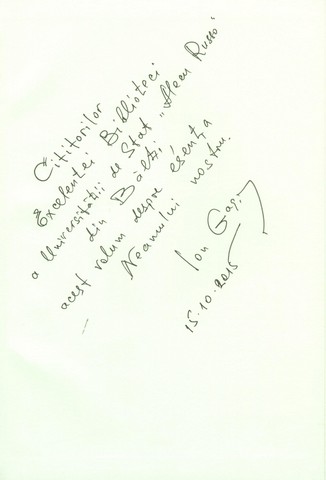 Cititorilor
Excelentei Biblioteci
a Universității de Stat "Alecu Russo"
din Bălți
acest volum despre esența
Neamului nostru.
Ion Gași
15.10.2015